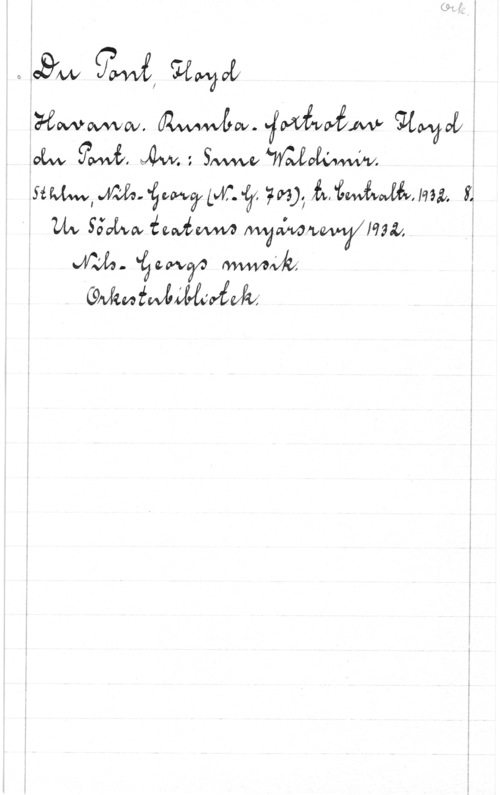 Ork.
Du Pont, Floyd
Havana. Rumba-foxtrot av Floyd
du Pont. Arr.: Sune Waldimir.
Sthlm, Nils-Georg (N.-G. 703); tr. Centraltr. 1932. 8.
Ur Södra teaterns nyårsrevy 1932.
Nils-Georgs musik.
Orkesterbibliotek.